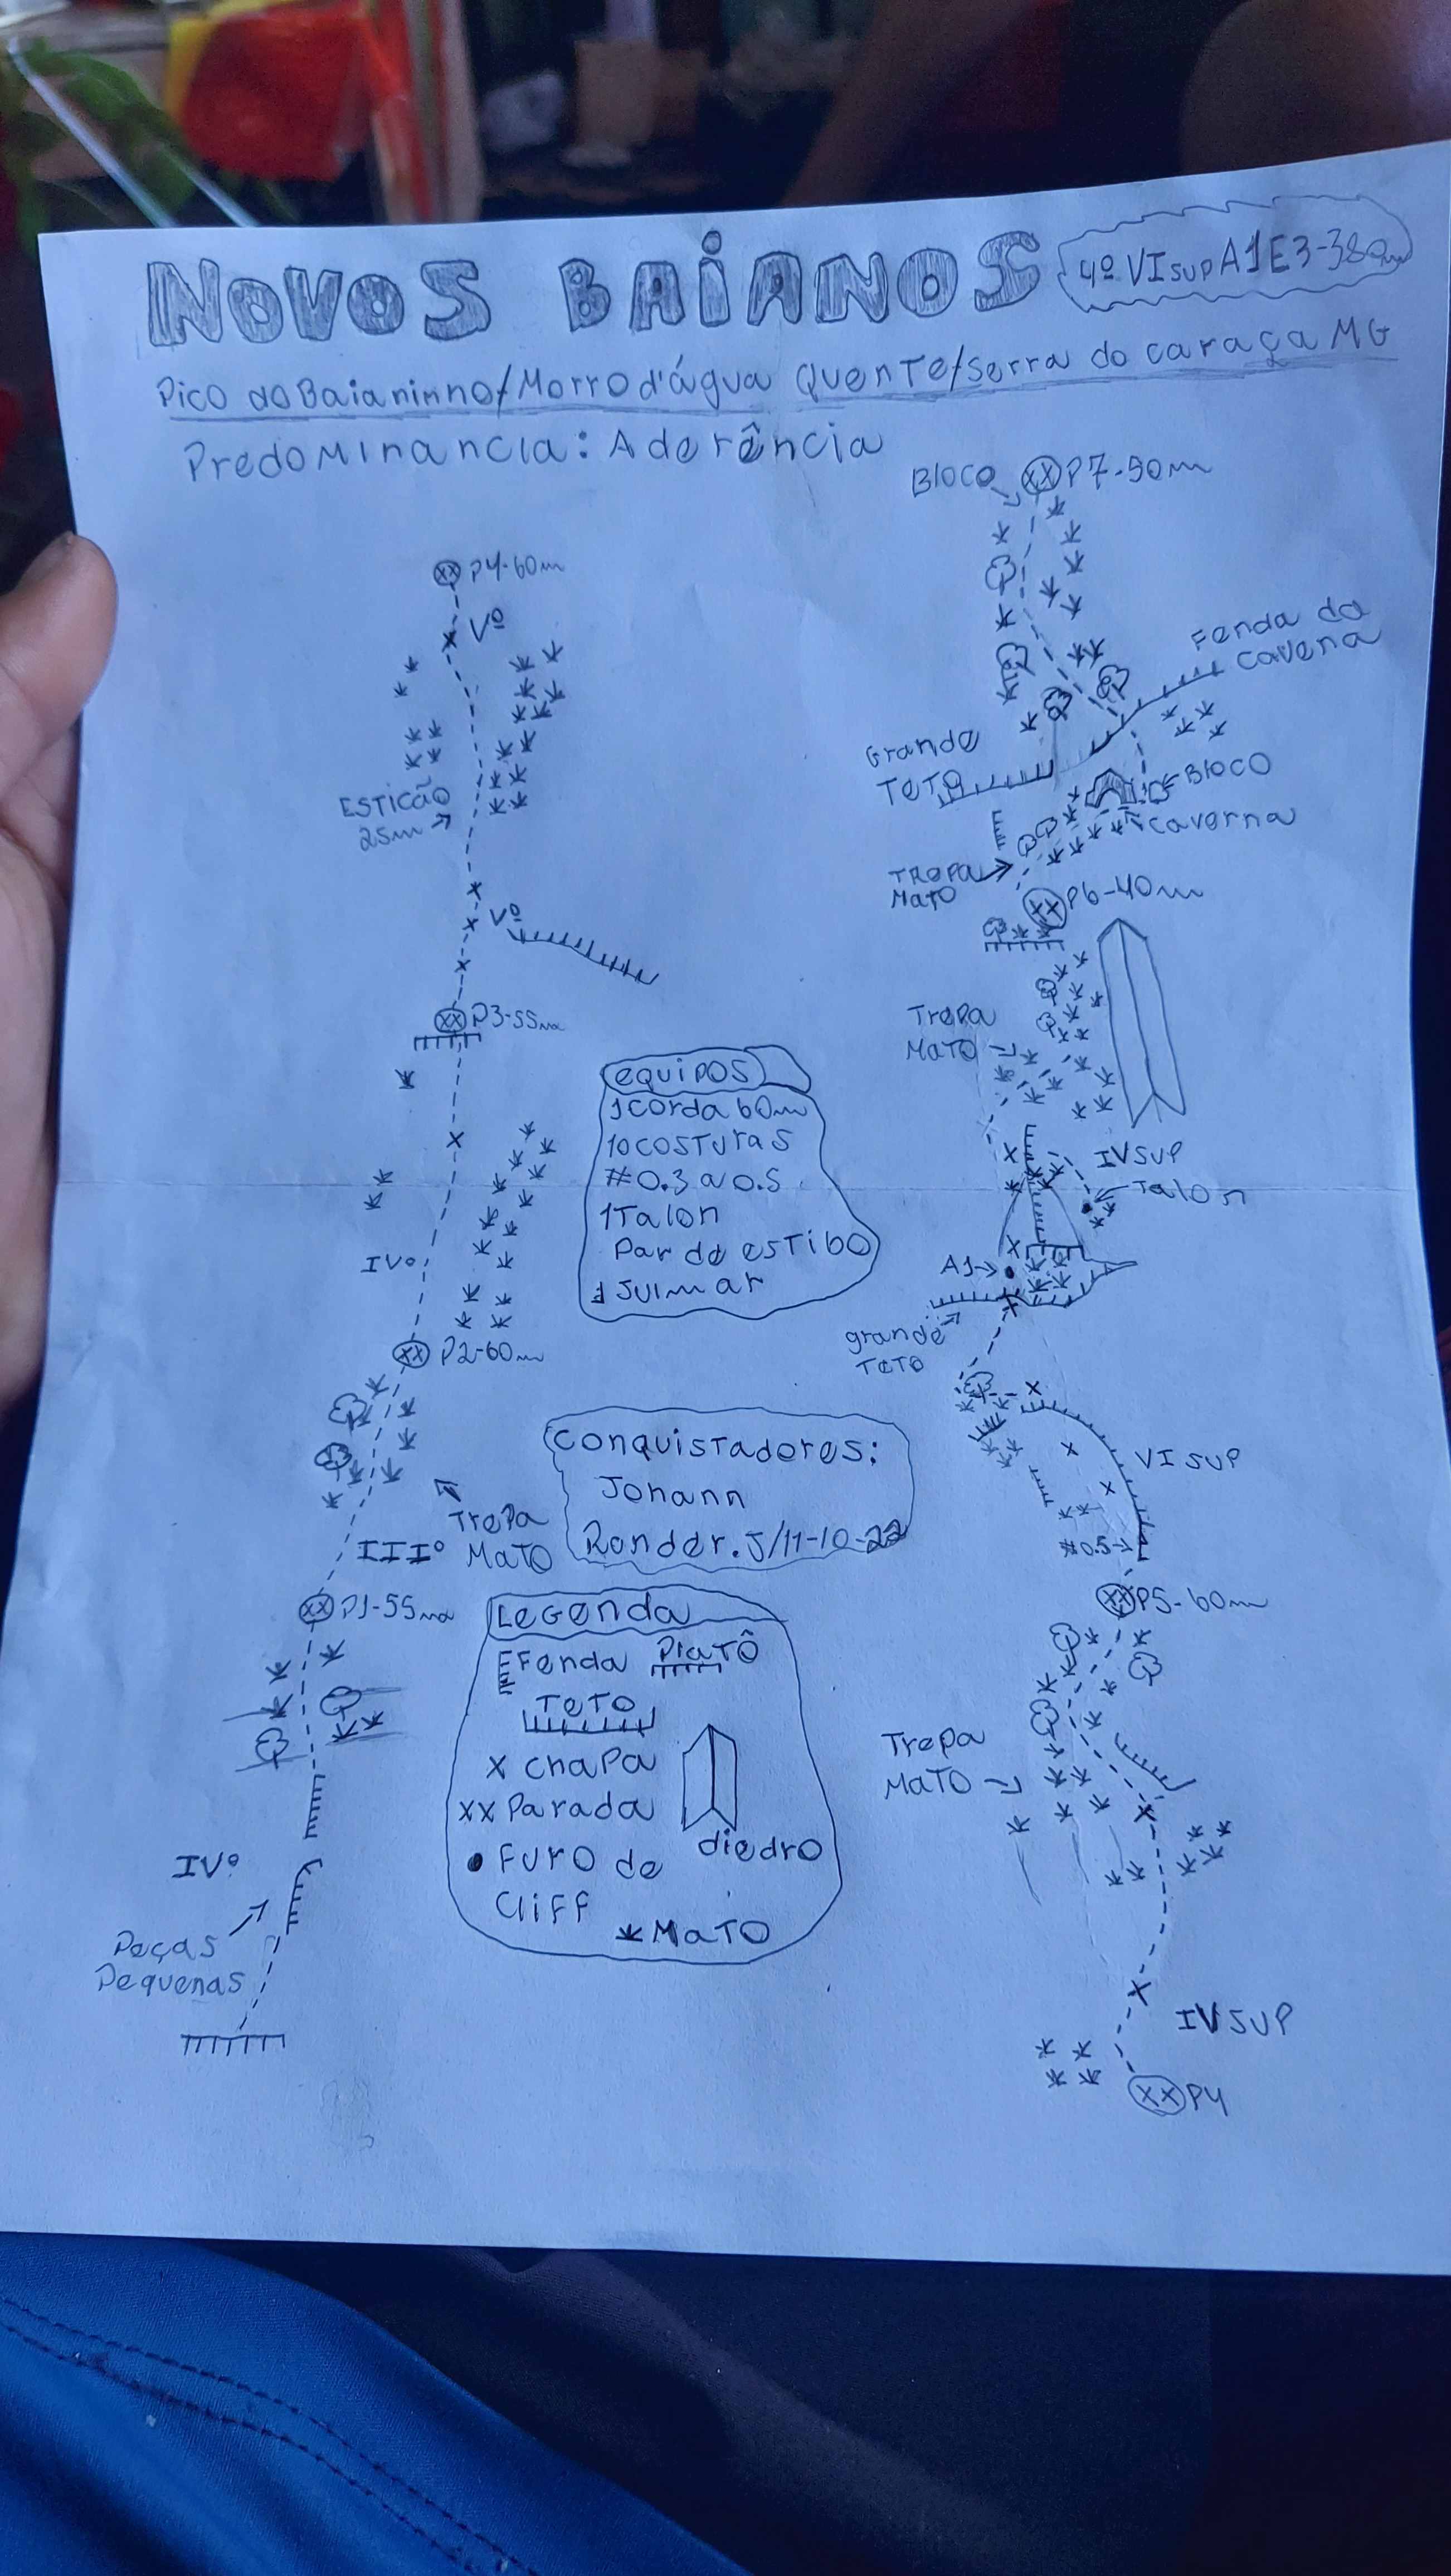 NOVOS BAIANOS
4º VIsup A1 E3-380m
Pico do Baianinho/Morro d'água Quente/Serra do caraça MG
Predominancia: Aderência
P4-60m
Vº
ESTICÃO
25m
Vº
P3-55m
IVº
P2-60m
Trepa
Mato
IIIº
P1-55m
IVº
Peças
Pequenas
equipos
1corda 60m
10costuras
#0.3 a 0.5
1Talon
Par de estibo
1Julmar
Conquistadores:
Johann
Rander.J/11-10-22
Legenda
Fenda Platô
Teto
x chapa
xx Parada
diedro
• Furo de
Cliff
MaTO
Bloco
P7-50m
Fenda da
cavena
Grande
TeTO
Bloco
caverna
Trepa
Mato
P6-40m
Trepa
MaTO
IVSUP
Talon
A1
grande
TeTO
VI SUP
#0.5
P5-60m
Trepa
MaTO
IVSUP
P4